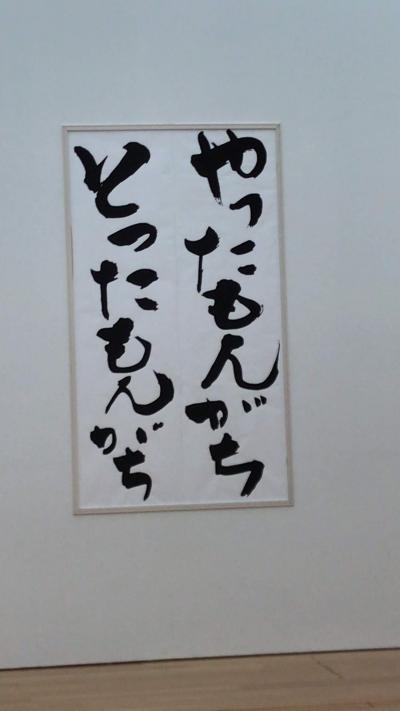 やったもんがち
とったもんがち